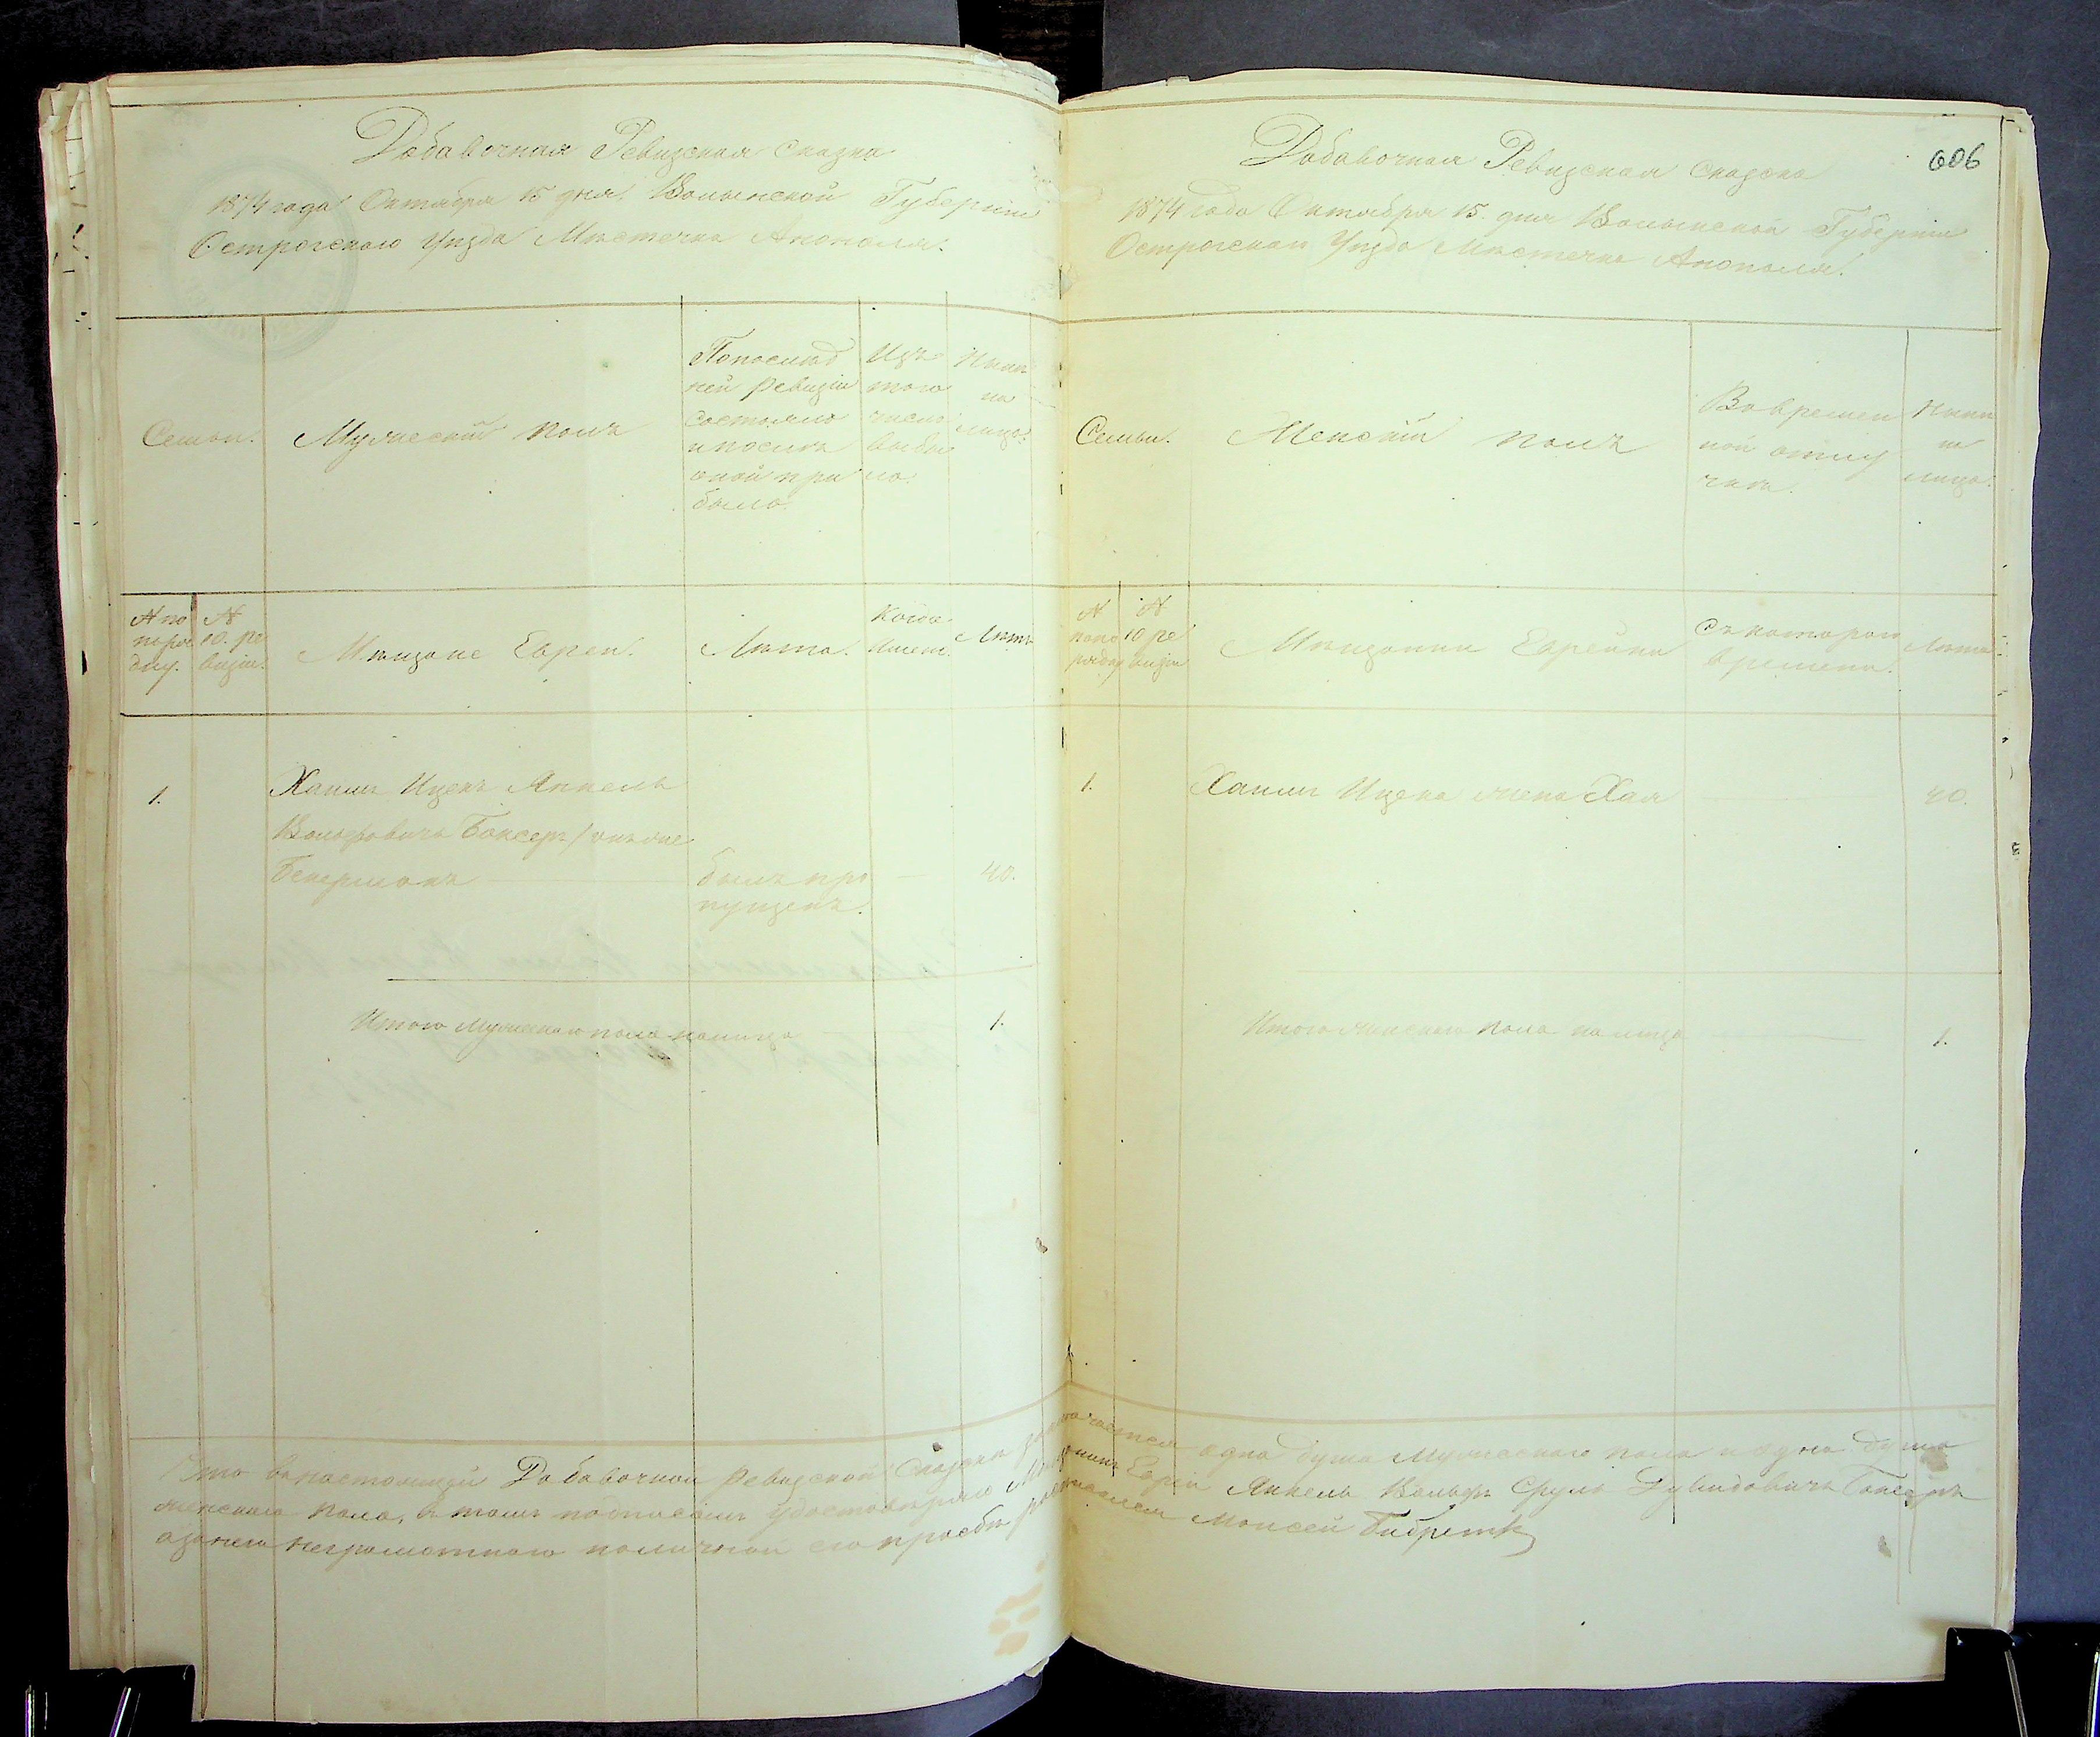 Добавочная Ревизская Сказка
1874 года Октября 15 дня Волынской Губерніи
Острогского Уѣзда Мѣстечка Анополя.
Семьи.
Мужескій полъ
Попослѣд
ней ревизіи
состояло
и послѣ
оной при
было
Изъ
того
числа
выбы
ло.
Нынѣ
на
лицо.
№ по
поря
дку.
№
10. ре
визіи.
Мѣщане Евреи.
Лѣта.
Когда
имено.
Лѣта
1.
Хаимъ Ицекъ Янкель
Вольфовичъ Боксеръ /онъ же
Бекерманъ
былъ про
пущенъ.
40.
Итого мужескаго пола налицо
1.
Добавочная Ревизская Сказка
606
1874 года Октября 15. дня Волынской Губерніи
Острогского Уѣзда Мѣстечка Анополя.
Семьи.
Женскій полъ
Вовремен
ной отлу
чкѣ.
Нынѣ
на
лицо.
№
попо
рядку
№
10 ре
визіи
Мѣщанки Еврейки
Съ котораго
времени.
Лѣта
1.
Хаимъ Ицека жена Хая
40.
Итого женскаго пола на лицо
1.
Что въ настоящей Добавочной ревизской Сказки одна душа Мужескаго пола и одна душа
женскаго пола, въ томъ подписомъ удостовѣряю Мѣщанинъ Еврей Янкель Вольфъ Сруль Дувидовичъ Боксеръ
а за него неграмотнаго по личной его просьбѣ Моисей